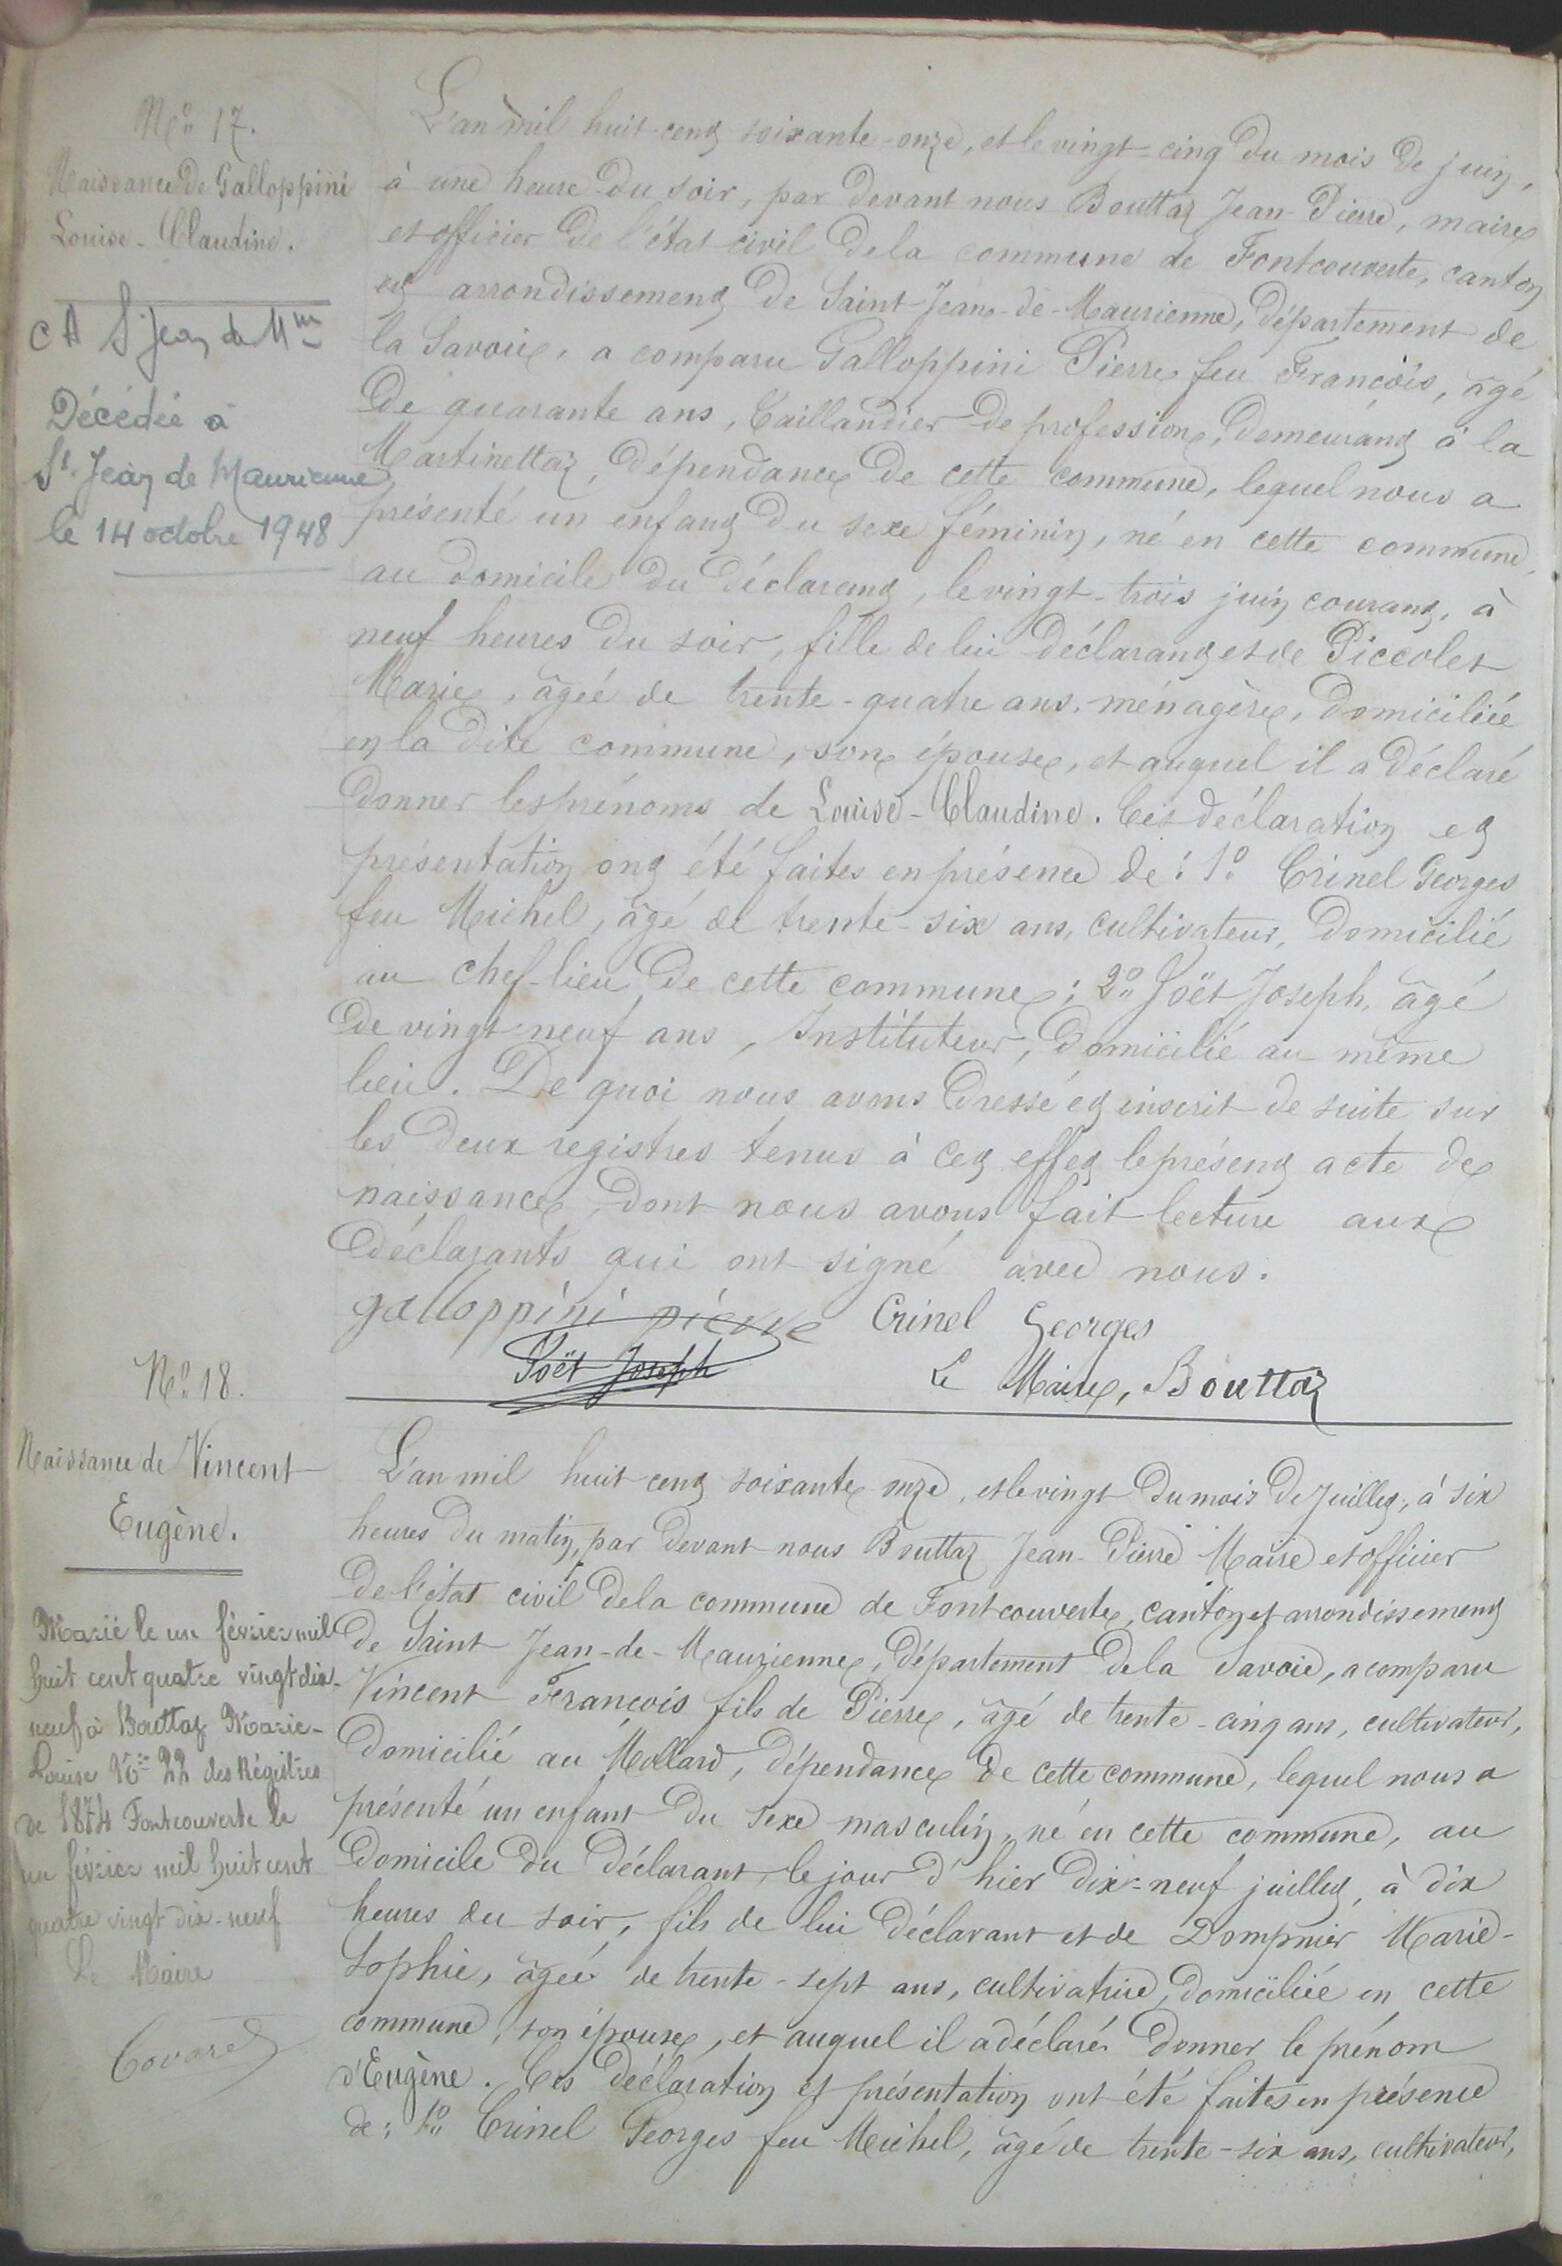 N.° 17.
Naissance de Galloppini
Louise-Claudine.
C A St Jean de Mne
Décédée à
St. Jean de Maurienne
le 14 octobre 1948
L'an mil huit cent soixante-onze, et le vingt-cinq du mois de juin,
à une heure du soir, par devant nous Bouttaz Jean-Pierre, maire
et officier de l'état civil de la commune de Fontcouverte, canton
et arrondissement de Saint-Jean-de-Maurienne, département de
la Savoie, a comparu Galloppini Pierre feu François, âgé
de quarante ans, Taillandier de profession, demeurant à la
Martinettaz, dépendance de cette commune, lequel nous a
présenté un enfant du sexe féminin, né en cette commune,
au domicile du déclarant, le vingt-trois juin courant, à
neuf heures du soir, fille de lui déclarant et de Piccolet
Marie, âgée de trente-quatre ans, ménagère, domiciliée
en la dite commune, son épouse, et auquel il a déclaré
donner les prénoms de Louise-Claudine. Ces déclaration et
présentation ont été faites en présence de: 1° Crinel Georges
feu Michel, âgé de trente-six ans, cultivateur, domicilié
au chef-lieu de cette commune; 2° Joët Joseph, âgé
de vingt-neuf ans, Instituteur, domicilié au même
lieu. De quoi nous avons dressé et inscrit de suite sur
les deux registres tenus à cet effet le présent acte de
naissance, dont nous avons fait lecture aux
déclarants qui ont signé avec nous.
galloppini pierre Crinel Georges
Joët Joseph Le Maire, Bouttaz
N.° 18.
Naissance de Vincent
Eugène.
Marié le un février mil
huit cent quatre vingt dix-
neuf à Bouttaz Marie-
Louise N° 22 des Régistres
de 1874 Fontcouverte le
un février mil huit cent
quatre vingt dix-neuf
Le Maire
Covarel
L'an mil huit cent soixante-onze, et le vingt du mois de Juillet, à six
heures du matin, par devant nous Bouttaz Jean-Pierre Maire et officier
de l'état civil de la commune de Fontcouverte, canton et arrondissement
de Saint Jean-de-Maurienne, département de la Savoie, a comparu
Vincent François fils de Pierre, âgé de trente-cinq ans, cultivateur,
domicilié au Mollard, dépendance de cette commune, lequel nous a
présenté un enfant du sexe masculin, né en cette commune, au
domicile du déclarant, le jour d'hier dix-neuf juillet, à dix
heures du soir, fils de lui déclarant et de Dompnier Marie-
Sophie, âgée de trente-sept ans, cultivatrice, domiciliée en cette
commune, son épouse, et auquel il a déclaré donner le prénom
d'Eugène. Ces déclaration et présentation ont été faites en présence
de: 1° Crinel Georges feu Michel, âgé de trente-six ans, cultivateur,